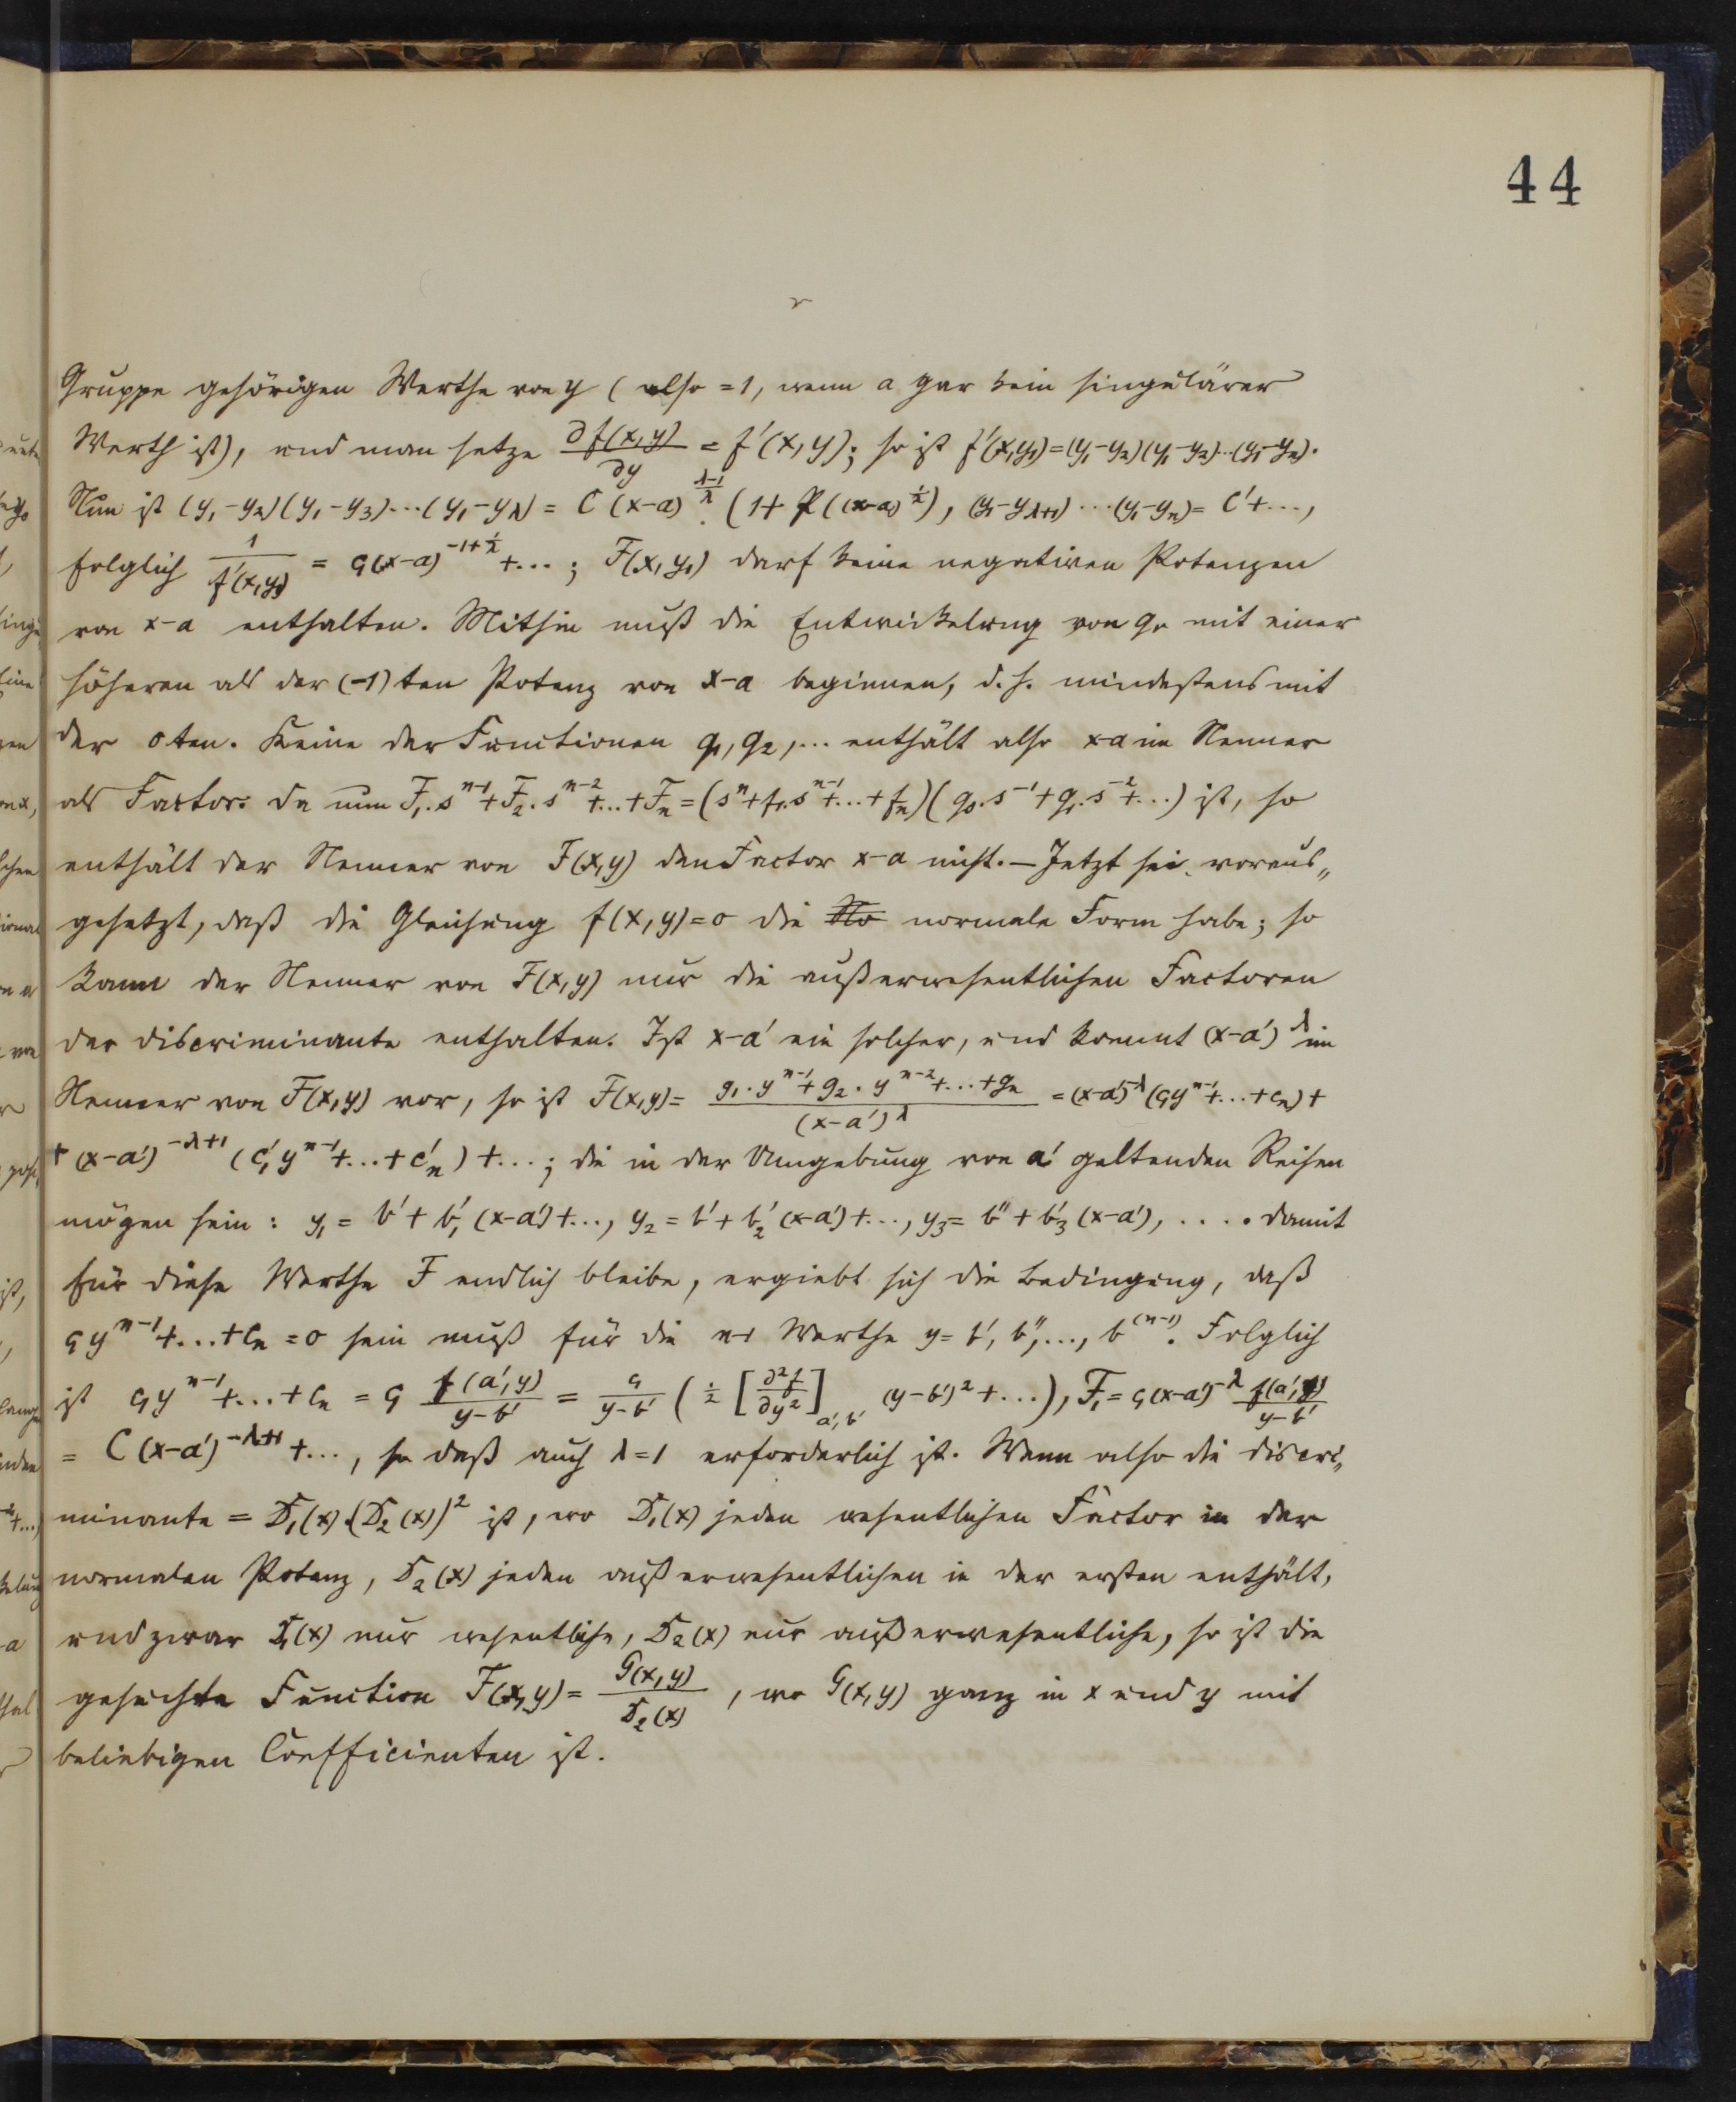 44
Gruppe gehörigen Werthe von y (also = 1, wenn a gar kein singulärer
Werth ist), und man setze ∂f(x,y)/∂y = f'(x,y); so ist f'(x,y₁) = (y₁-y₂)(y₁-y₃)...(y₁-yₙ).
Nun ist (y₁-y₂)(y₁-y₃)...(y₁-y_λ) = C(x-a)^{(λ-1)/λ}.(1+P((x-a)^{1/λ}), (y₁-y_{λ+1})...(y₁-yₙ) = C'+...,
folglich 1/f'(x,y₁) = c₁(x-a)^{-1+1/λ}+...; F(x,y₁) darf keine negativen Potenzen
von x-a enthalten. Mithin muß die Entwickelung von gᵣ mit einer
höheren als der (-1)ten Potenz von x-a beginnen, d.h. mindestens mit
der 0ten. Keine der Functionen g₁, g₂,... enthält also x-a im Nenner
als Factor. Da nun F₁.s^{n-1}+F₂.s^{n-2}+...+Fₙ = (sⁿ+f₁.s^{n-1}+...+fₙ)(g₀.s^{-1}+g₁.s^{-2}+...) ist, so
enthält der Nenner von F(x,y) den Factor x-a nicht. — Jetzt sei voraus„
gesetzt, daß die Gleichung f(x,y)=0 die No normale Form habe; so
kann der Nenner von F(x,y) nur die außerwesentlichen Factoren
der Discriminante enthalten. Ist x-a' ein solcher, und kommt (x-a')^λ im
Nenner von F(x,y) vor, so ist F(x,y) = (g₁.y^{n-1}+g₂.y^{n-2}+...+gₙ)/(x-a')^λ = (x-a')^{-λ}(c₁y^{n-1}+...+cₙ)+
+(x-a')^{-λ+1}(c'₁y^{n-1}+...+c'ₙ)+...; die in der Umgebung von a' geltenden Reihen
mögen sein: y₁ = b'+b'₁(x-a')+..., y₂ = b'+b'₂(x-a')+..., y₃ = b''+b'₃(x-a'),.... Damit
für diese Werthe F endlich bleibe, ergiebt sich die Bedingung, daß
c₁y^{n-1}+...+cₙ = 0 sein muß für die n-1 Werthe y = b', b'',..., b^{(n-1)}. Folglich
ist c₁y^{n-1}+...+cₙ = c₁ f(a',y)/(y-b') = c₁/(y-b') (1/2 [∂²f/∂y²]_{a',b'} (y-b')²+...), F₁ = c₁(x-a')^{-λ} f(a',y₁)/(y-b')
= C(x-a')^{-λ+1}+..., so daß auch λ=1 erforderlich ist. Wenn also die Discri„
minante = D₁(x).(D₂(x))² ist, wo D₁(x) jeden wesentlichen Factor in der
normalen Potenz, D₂(x) jeden außerwesentlichen in der ersten enthält,
und zwar D₁(x) nur wesentliche, D₂(x) nur außerwesentliche, so ist die
gesuchte Function F(x,y) = G(x,y)/D₂(x), wo G(x,y) ganz in x und y mit
beliebigen Coefficienten ist.